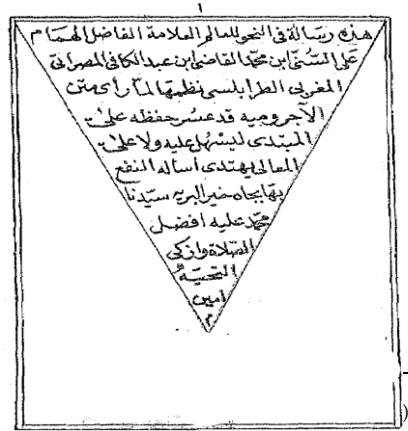 ١
هذه رسالة في النحو للعالم العلامة الفاضل الهمام
علي السني ابن محمد القاضي ابن عبد الكافي المصراتي
المغربي الطرابلسي نظمها لما رأى متن
الآجروميه قد عسر حفظه على
المبتدى ليسهل عليه ولا على
المعالي يهتدى اساله النفع
بها بجاه خير البريه سيدنا
محمد عليه افضل
الصلاة وازكى
التحيه
امين
م